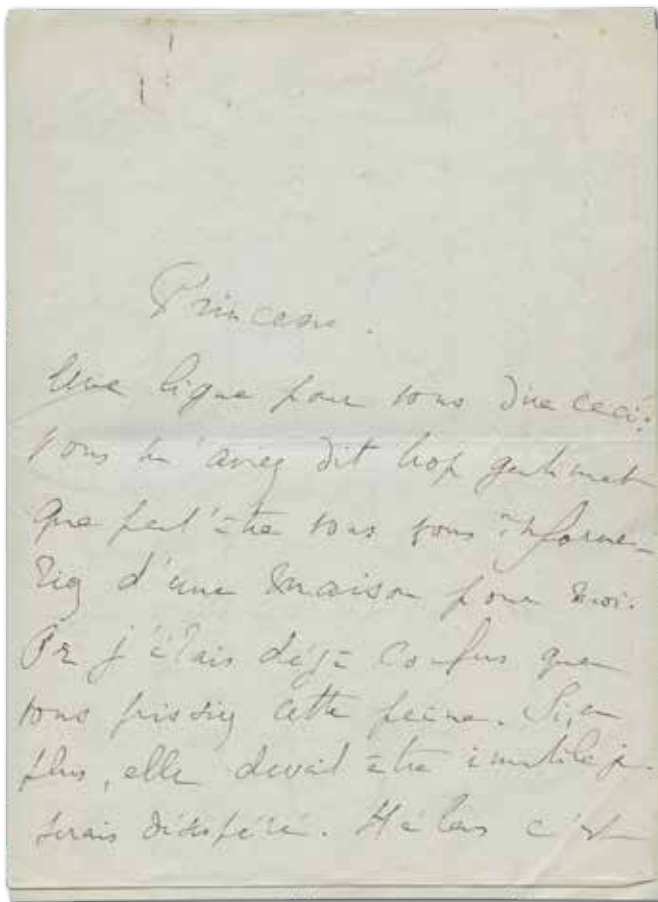 Princesse.
Une ligne pour vous dire ceci:
vous m'aviez dit trop gentiment
que peut'être vous vous informe-
riez d'une maison pour moi.
Or j'étais déjà confus que
vous prissiez cette peine. Si, en
plus, elle devait être inutile je
serais désespéré. Hélas c'est